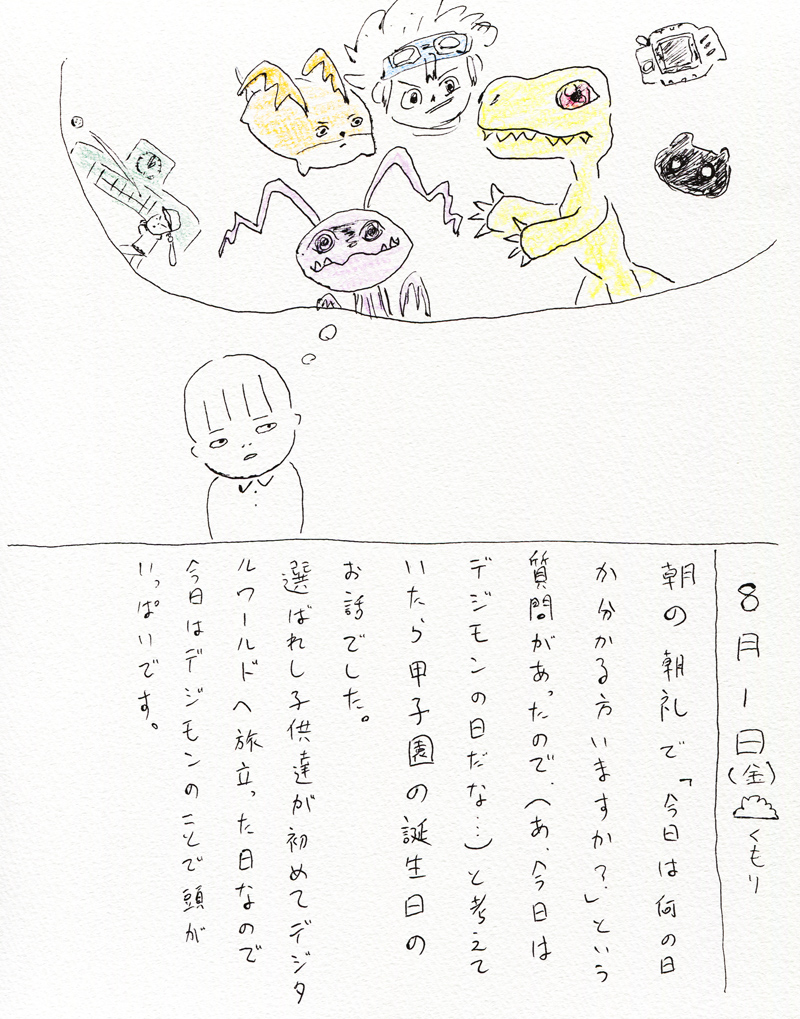 8月1日(金)くもり
朝の朝礼で「今日は何の日
か分かる方いますか?」という
質問があったので、(あ、今日は
デジモンの日だな…)と考えて
いたら甲子園の誕生日の
お話でした。
選ばれし子供達が初めてデジタ
ルワールドへ旅立った日なので
今日はデジモンのことで頭が
いっぱいです。